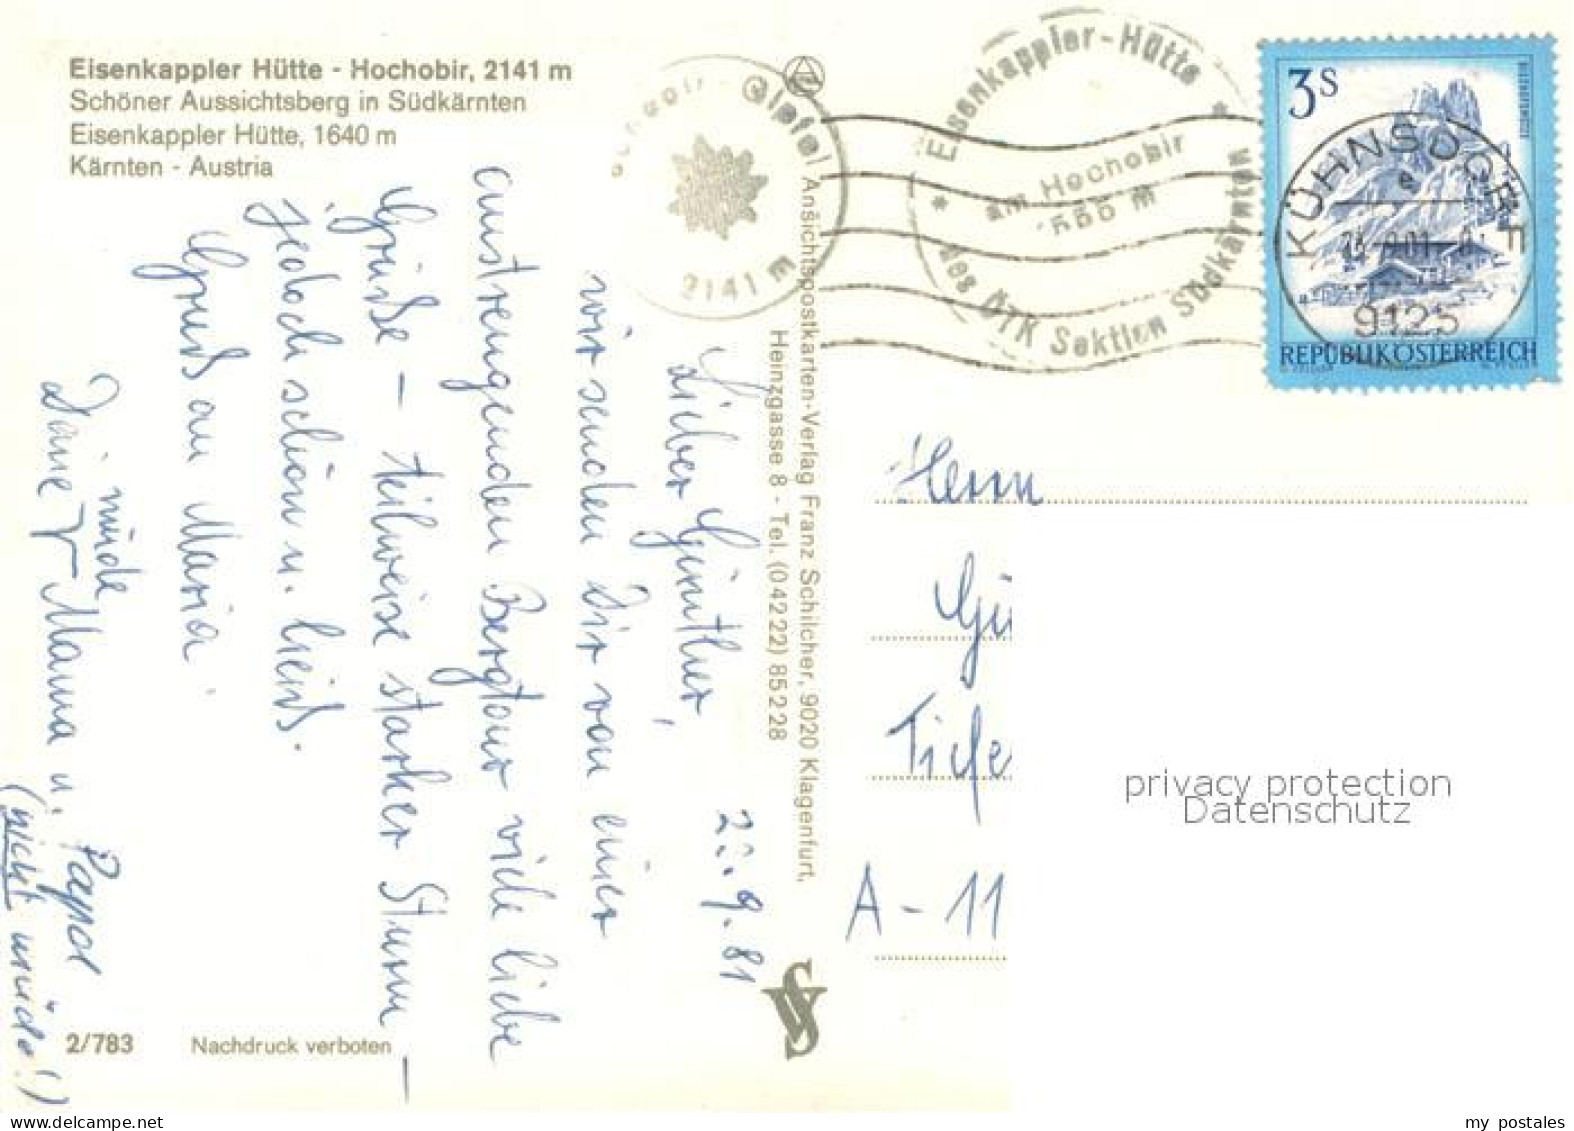 Eisenkappler Hütte - Hochobir, 2141 m
Schöner Aussichtsberg in Südkärnten
Eisenkappler Hütte, 1640 m
Kärnten - Austria
Gipfel
2141 m
* Eisenkappler-Hütte *
am Hochobir
des ÖTK Sektion Südkärnten
3S
KÜHNSDORF
e
9125
REPUBLIK ÖSTERREICH
Ansichtspostkarten-Verlag Franz Schilcher, 9020 Klagenfurt,
Heinzgasse 8 - Tel. (04222) 85228
9.81
Lieber Günther,
wir senden Dir von einer
anstrengenden Bergtour viele liebe
Grüße – teilweise starker Sturm –
jedoch schön u. heiß.
Gruß an Maria
müde
Deine Mama u. Papa
(nicht müde!)
Herrn
Gü
Tiefe
A - 11
privacy protection
Datenschutz
2/783
Nachdruck verboten
www.delcampe.net
my postales